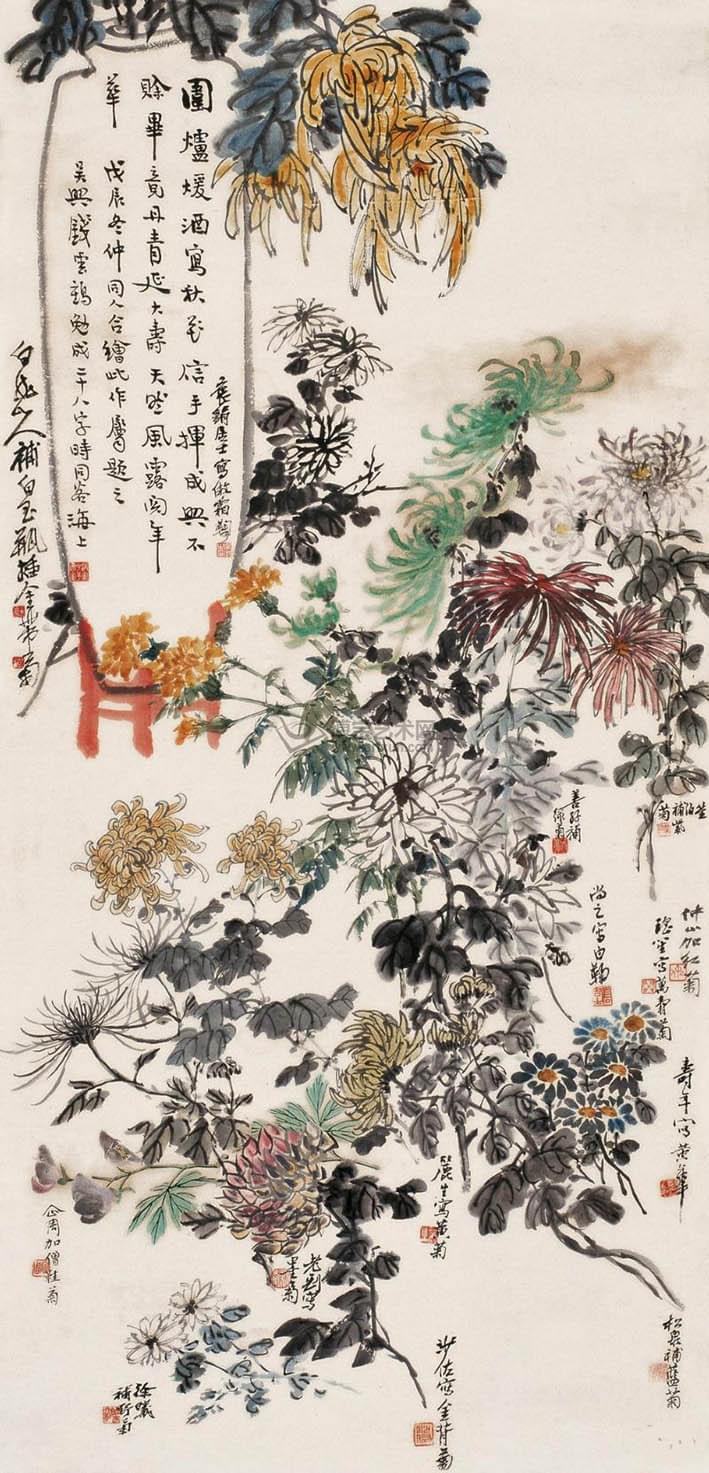 圍爐煖酒寫秋花信手揮成興不
賒畢竟丹青延大壽天然風露閱年
華 戊辰冬仲同人合繪此作屬題之
吳興錢雲鶴勉成二十八字時同客海上
白龍山人補白玉瓶插金帶菊
居士寫傲霜菊
善孖補
綠菊
尚之寫白鞠
補紫
菊
仲山加紅菊
瑤笙寫萬壽菊
壽年寫黃華
麗生寫黃菊
老劍寫
墨菊
企周加僧鞋菊
徐曦
補野菊
少佐寫金背菊
松泉補藍菊
博宝艺术网